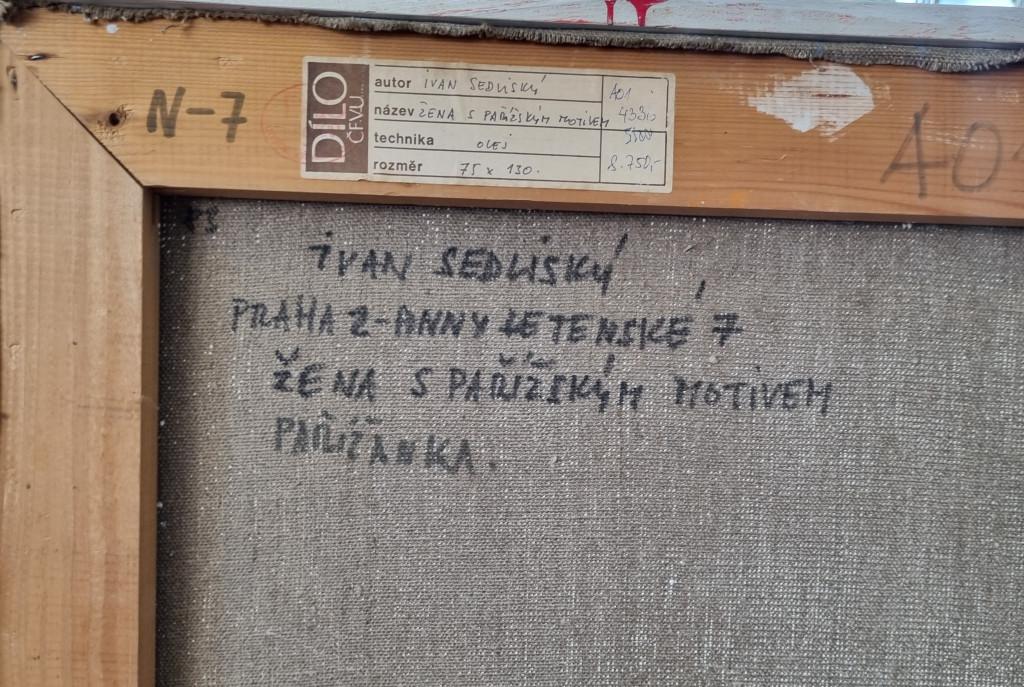 N-7
DÍLO
ČFVU...
autor IVAN SEDLISKÝ
název ŽENA S PAŘÍŽSKÝM MOTIVEM
technika OLEJ
rozměr 75 x 130.
401
8.750,-
40
IVAN SEDLISKÝ
PRAHA 2-ANNY LETENSKÉ 7
ŽENA S PAŘÍŽSKÝM MOTIVEM
PAŘÍŽANKA.